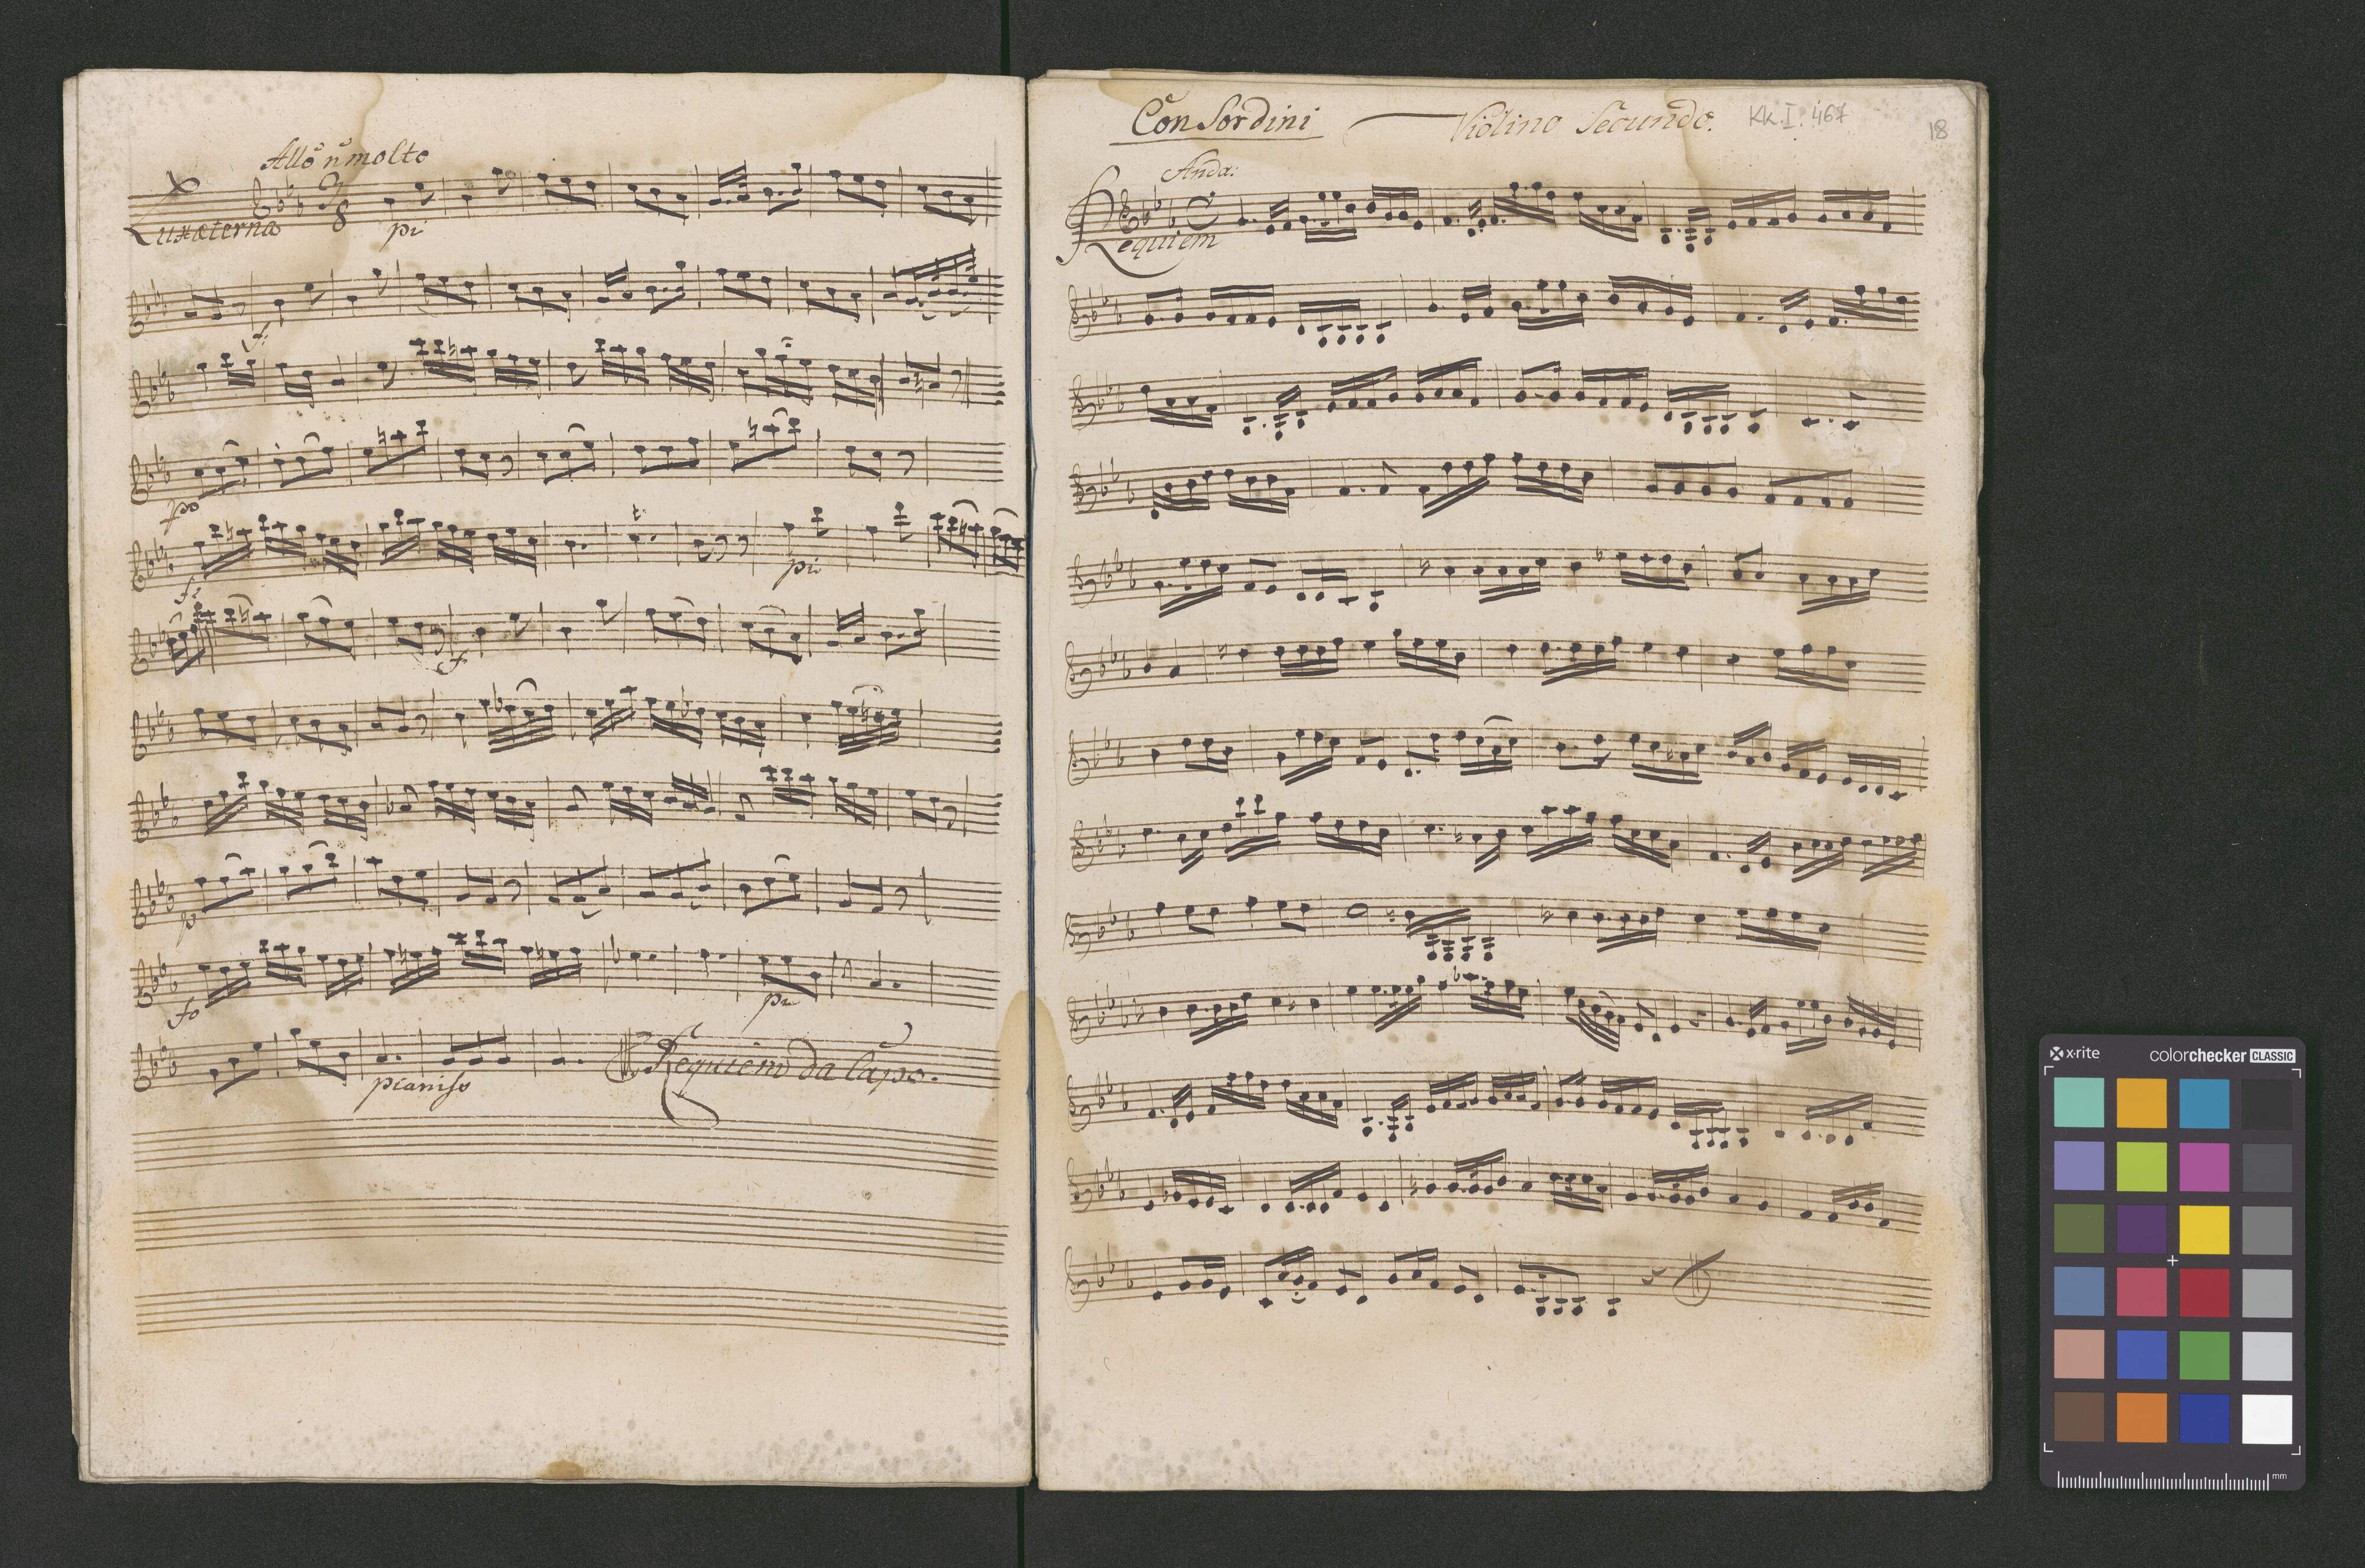 Allo ñ molto
Lux æterna
3
8
pi
f:
po
fo
pi
f
p
fo
pi
pianisso
Requiem da Capo.
Con Sordini
Violino Secundo.
Kk. I. 467
18
Anda:
Requiem
x-rite
colorchecker CLASSIC
mm